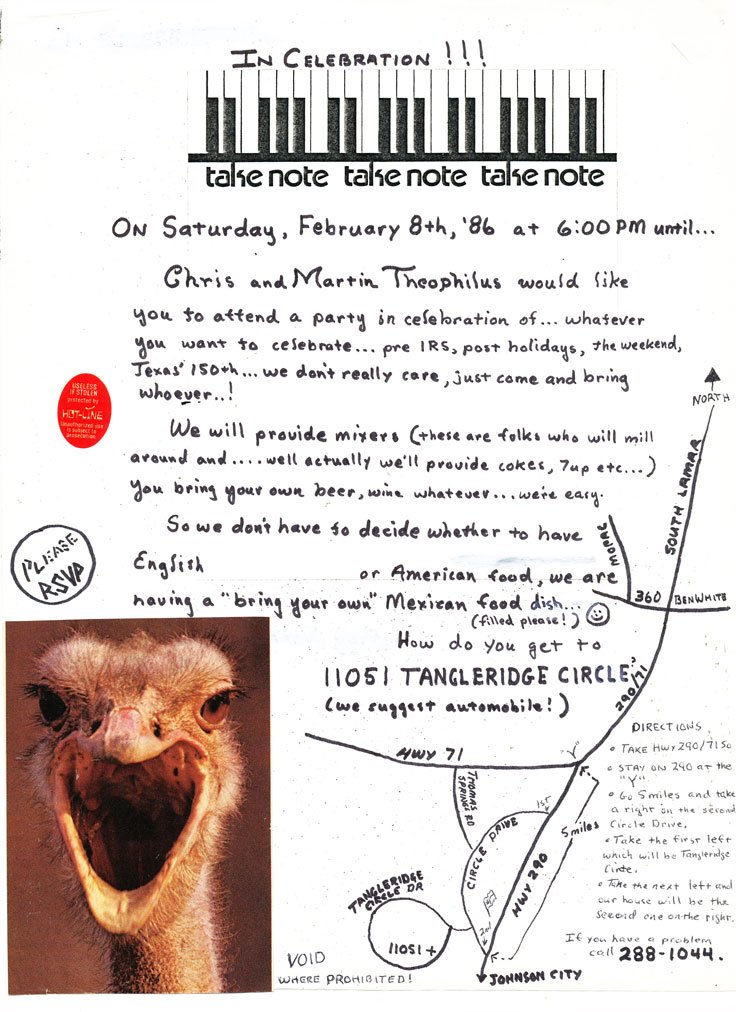 IN CELEBRATION !!!
take note take note take note
ON Saturday, February 8th, '86 at 6:00 PM until...
Chris and Martin Theophilus would like
you to attend a party in celebration of... whatever
you want to celebrate... pre IRS, post holidays, the weekend,
Texas' 150th... we don't really care, just come and bring
whoever..!
USELESS
IF STOLEN
protected by
HOT-LINE
Unauthorized use
is subject to
prosecution
We will provide mixers (these are folks who will mill
around and.... well actually we'll provide cokes, 7up etc...)
You bring your own beer, wine whatever... we're easy.
So we don't have to decide whether to have
English
or American food, we are
having a "bring your own" Mexican food dish...
(filled please!)
PLEASE
RSVP
How do you get to
11051 TANGLERIDGE CIRCLE?
(we suggest automobile!)
NORTH
SOUTH LAMAR
MOPAC
360
BEN WHITE
290/71
"Y"
HWY 71
THOMAS
SPRINGS RD
CIRCLE DRIVE
1ST
2nd
5 miles
HWY 290
TANGLERIDGE
CIRCLE DR
11051 +
JOHNSON CITY
DIRECTIONS
• TAKE HWY 290/71 SO
• STAY ON 290 at the
"Y".
• Go 5 miles and take
a right on the second
Circle Drive.
• Take the first left
which will be Tangleridge
Circle.
• Take the next left and
our house will be the
second one on the right.
If you have a problem
call 288-1044.
VOID
WHERE PROHIBITED!